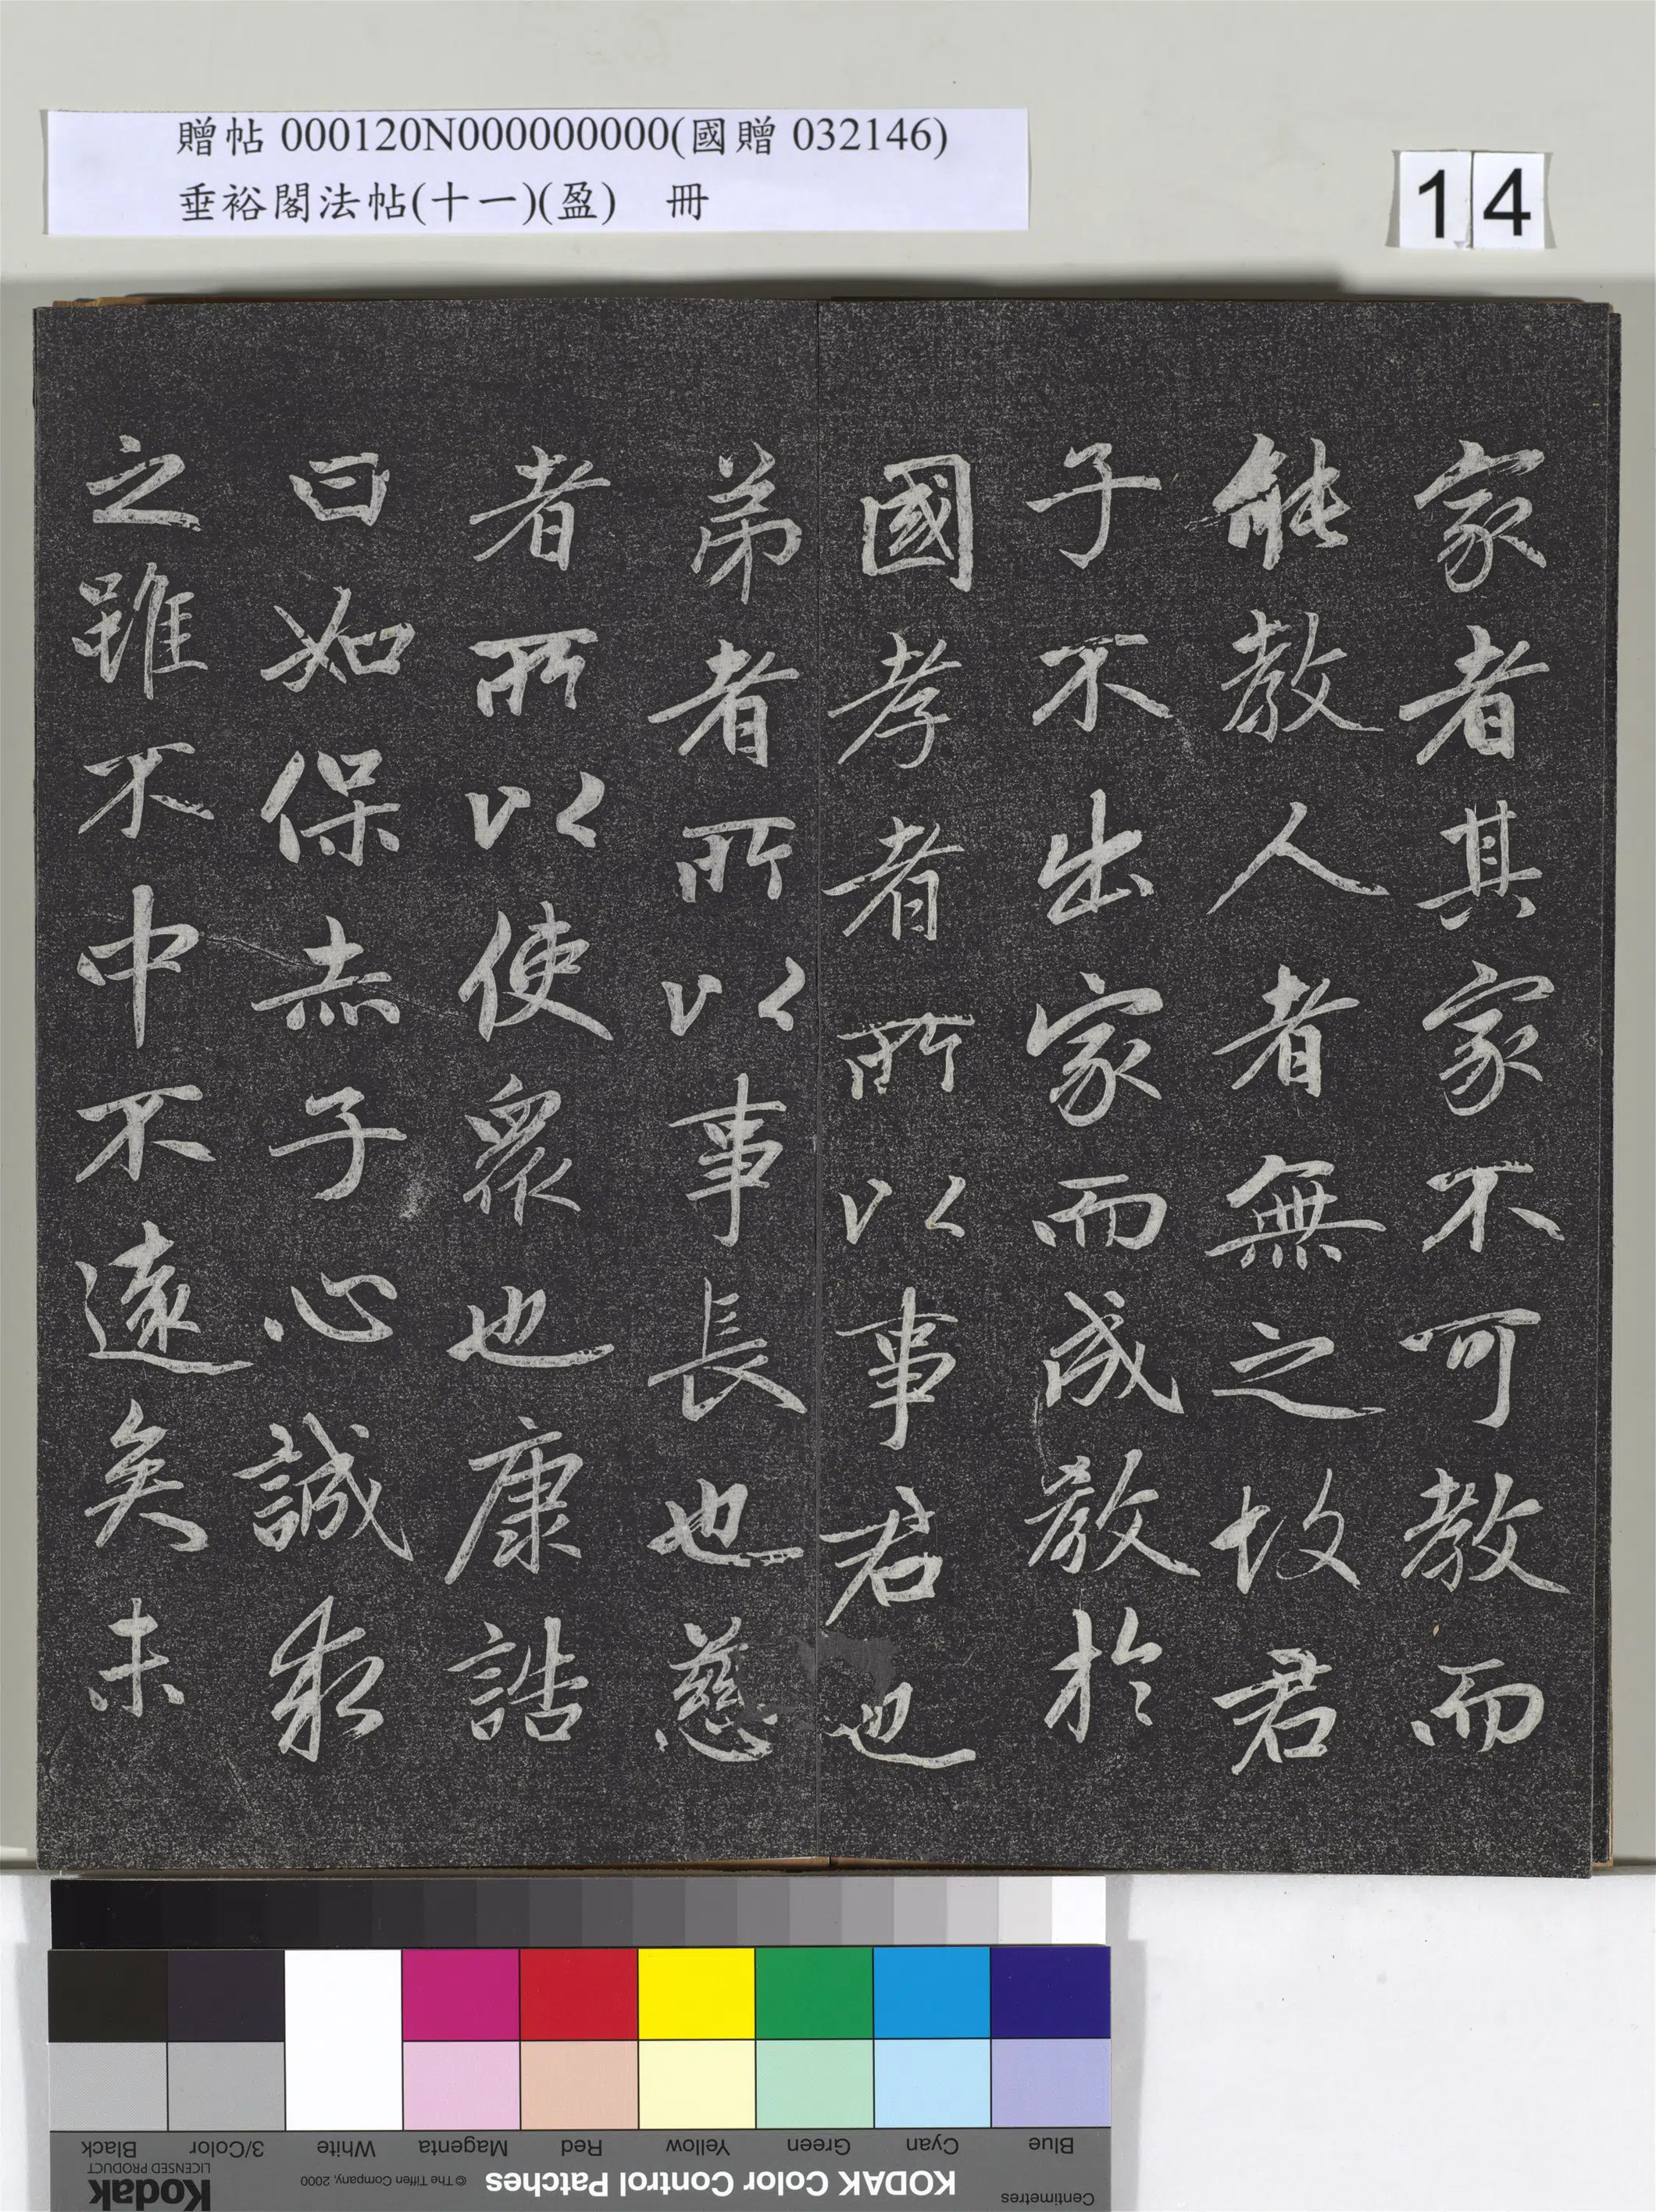 贈帖 000120N000000000(國贈 032146)
垂裕閣法帖(十一)(盈) 冊
14
家者其家不可教而
能教人者無之故君
子不出家而成教於
國孝者所以事君也
弟者所以事長也慈
者所以使眾也康誥
曰如保赤子心誠求
之雖不中不遠矣未
Blue
Cyan
Green
Yellow
Red
Magenta
White
3/Color
Black
Centimetres
KODAK Color Control Patches
© The Tiffen Company, 2000
Kodak
LICENSED PRODUCT